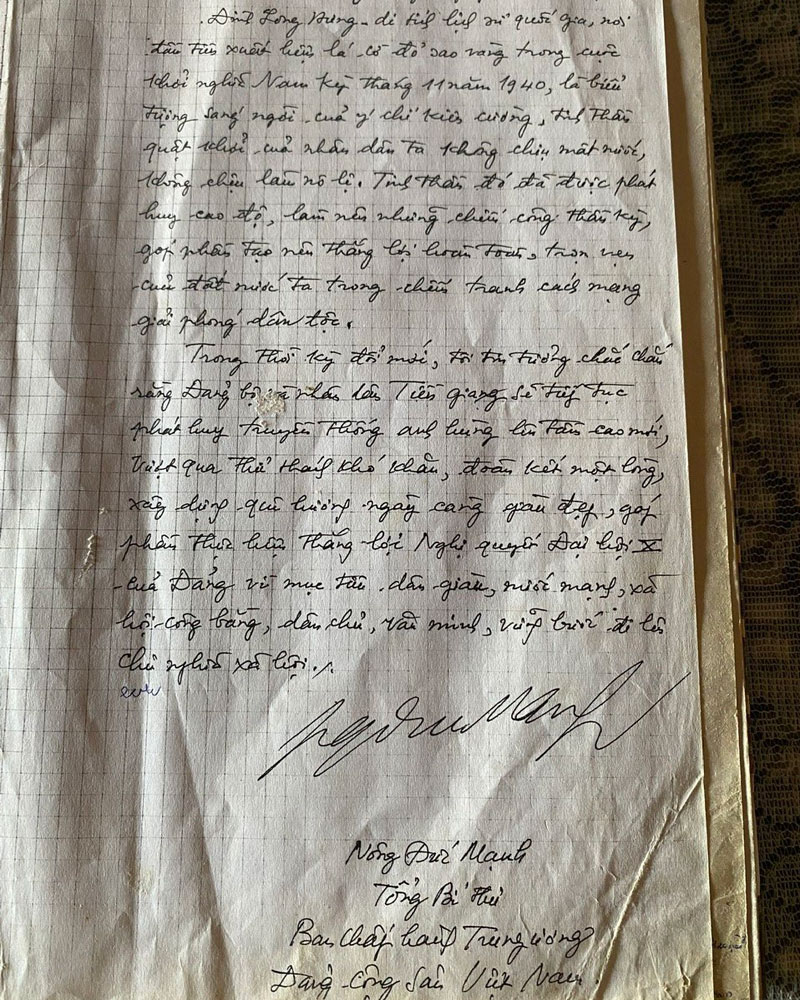 Đình Long Hưng - di tích lịch sử quốc gia, nơi
đầu tiên xuất hiện lá cờ đỏ sao vàng trong cuộc
khởi nghĩa Nam Kỳ tháng 11 năm 1940, là biểu
tượng sáng ngời của ý chí kiên cường, tinh thần
quật khởi của nhân dân ta không chịu mất nước,
không chịu làm nô lệ. Tinh thần đó đã được phát
huy cao độ, làm nên những chiến công thần kỳ,
góp phần tạo nên thắng lợi hoàn toàn, trọn vẹn
của đất nước ta trong chiến tranh cách mạng
giải phóng dân tộc.
Trong thời kỳ đổi mới, tôi tin tưởng chắc chắn
rằng Đảng bộ và nhân dân Tiền giang sẽ tiếp tục
phát huy truyền thống anh hùng lên tầm cao mới,
vượt qua thử thách khó khăn, đoàn kết một lòng,
xây dựng quê hương ngày càng giàu đẹp, góp
phần thực hiện thắng lợi Nghị quyết Đại hội X
của Đảng vì mục tiêu dân giàu, nước mạnh, xã
hội công bằng, dân chủ, văn minh, vững bước đi lên
chủ nghĩa xã hội./.
Nông Đức Mạnh
Tổng Bí thư
Ban Chấp hành Trung ương
Đảng cộng sản Việt Nam.